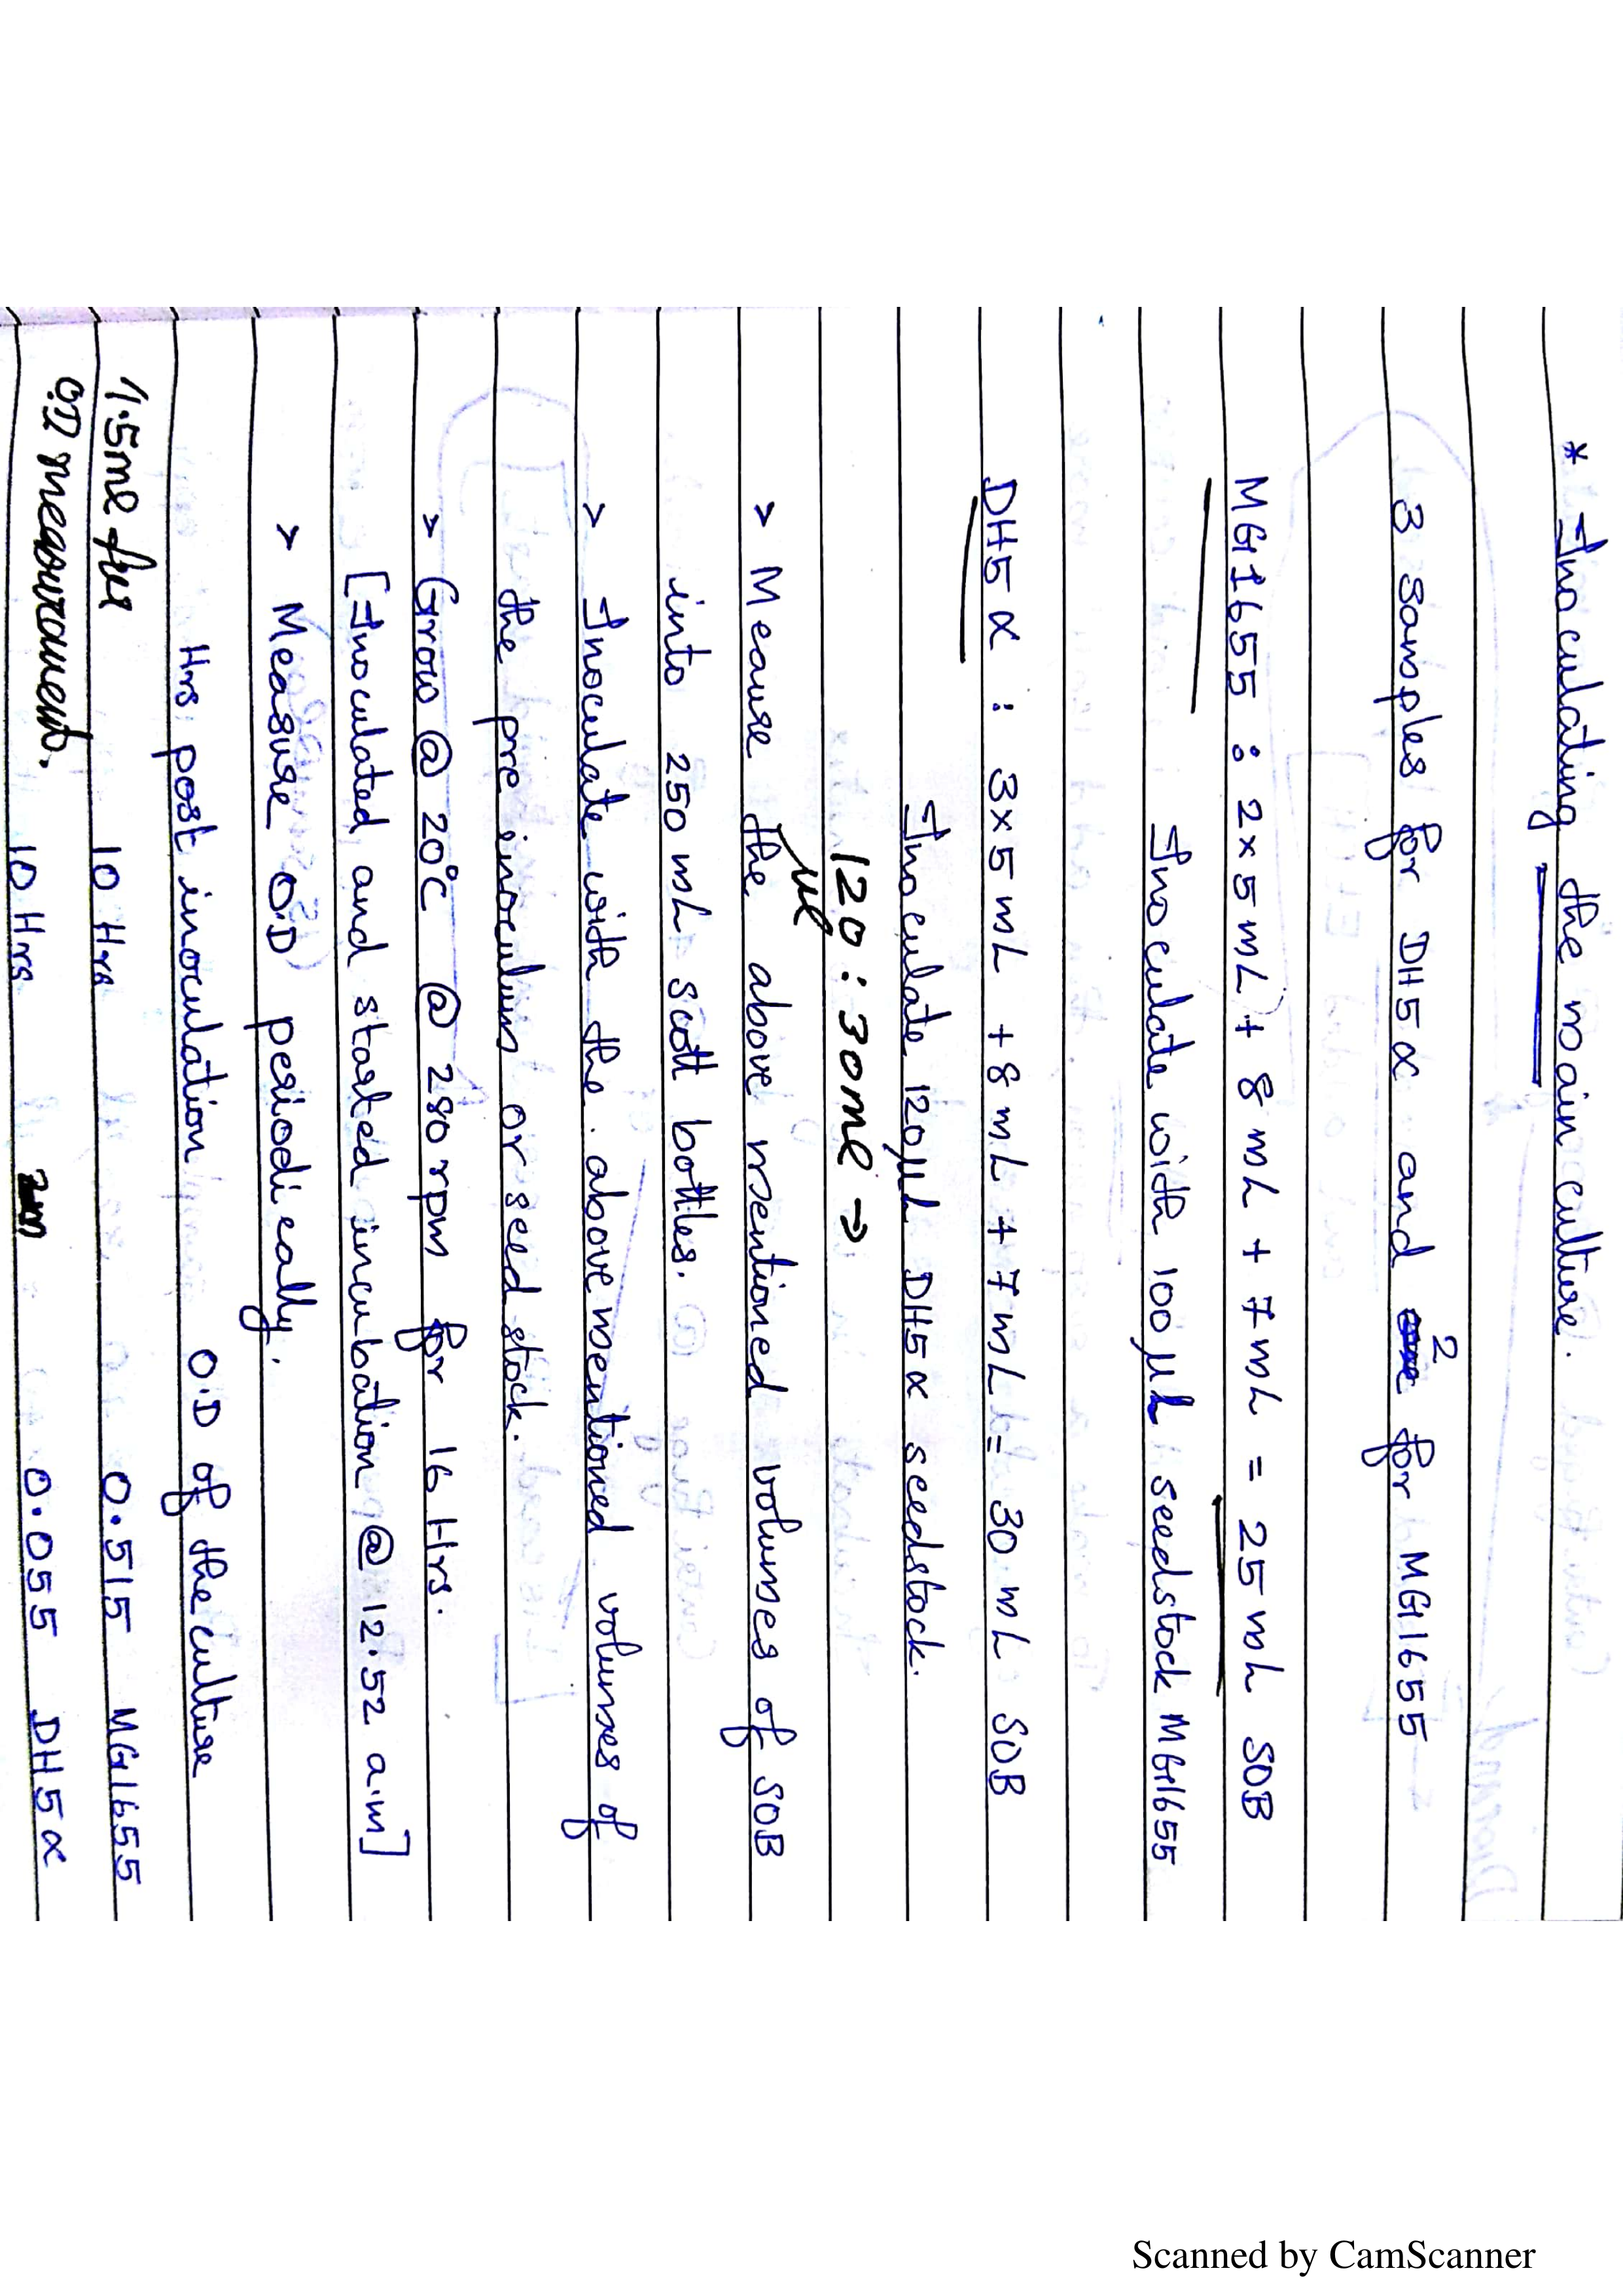 * Inoculating the main culture.
3 samples for DH5α and 2 for MG1655
MG1655 : 2×5mL + 8mL + 7mL = 25mL SOB
Inoculate with 100µL seedstock MG1655
DH5α : 3×5mL +8mL +7mL = 30mL SOB
Inoculate 120µL DH5α seedstock.
120 : 30ml →
µl
> Meausre the above mentioned volumes of SOB
into 250mL scott bottles.
> Inoculate with the above mentioned volumes of
the pre inoculum or seed stock.
> Grow @ 20°C @ 280rpm for 16 Hrs.
[Inoculated and started incubation @ 12.52 am]
> Measure O.D periodically.
Hrs post inoculation O.D of the culture
1.5ml for 10 Hrs 0.515 MG1655
O.D measurement. 10 Hrs 0.055 DH5α
Scanned by CamScanner